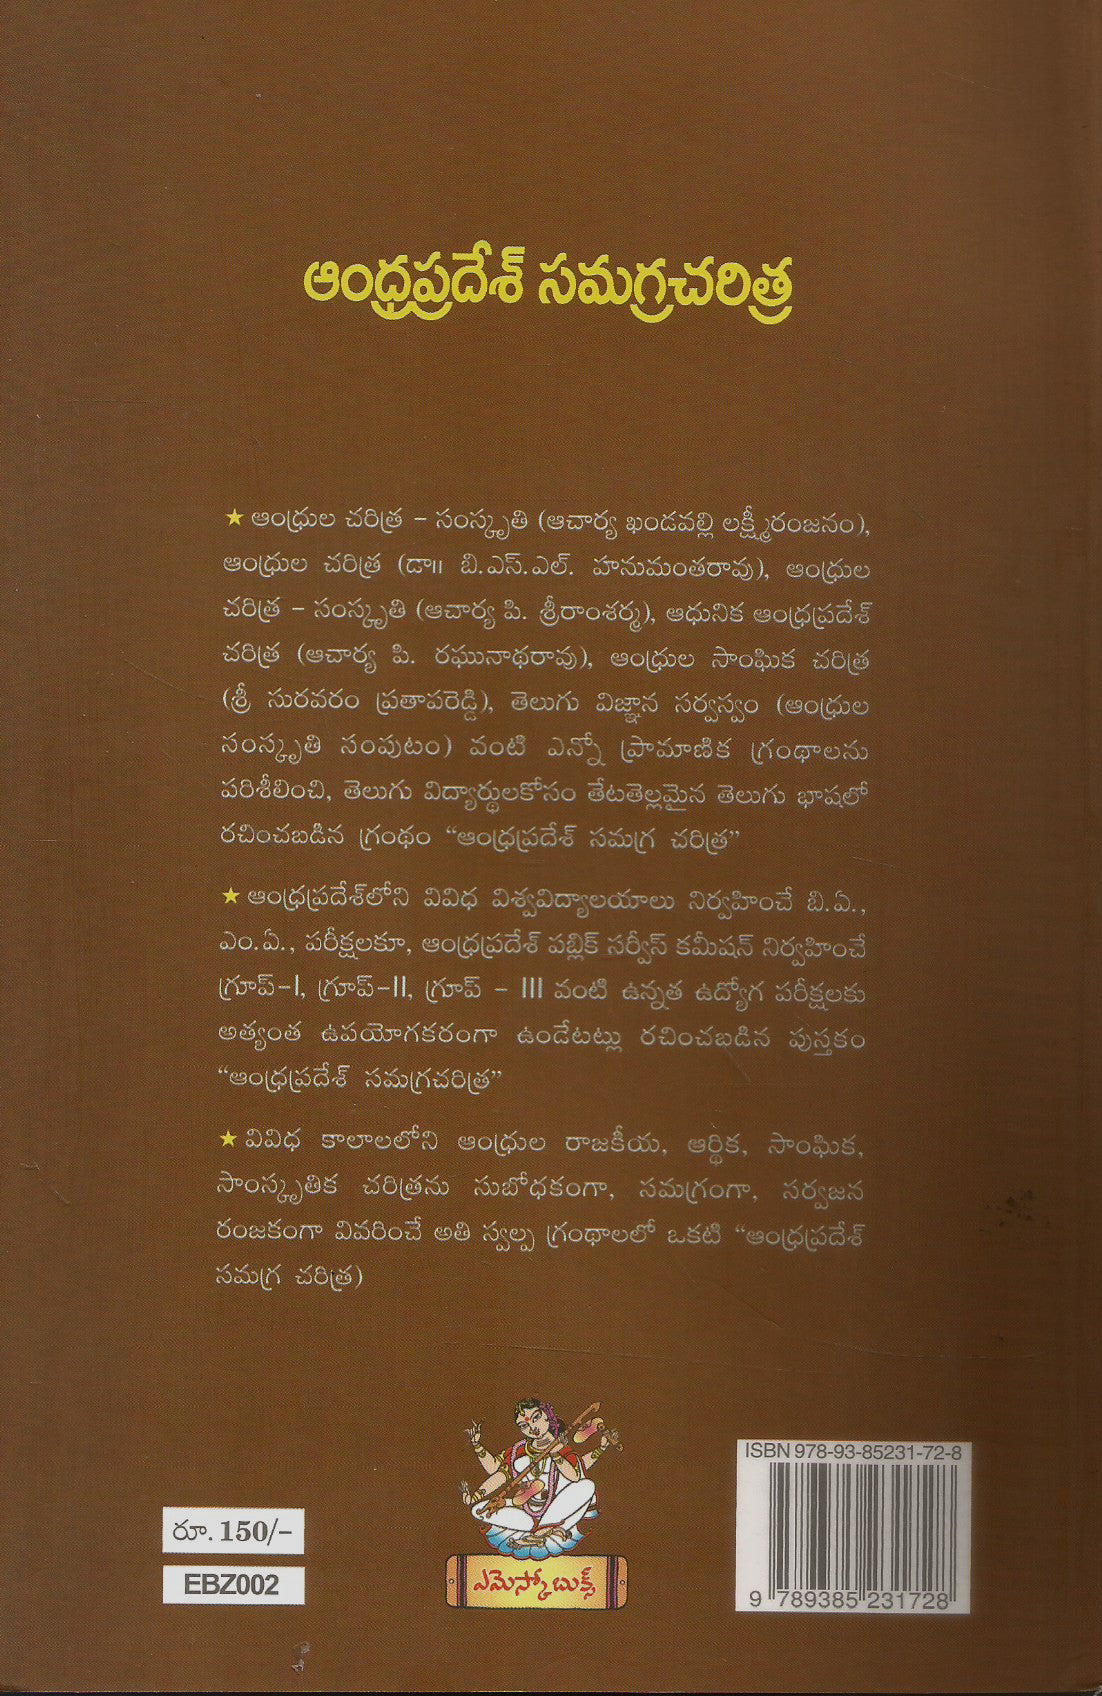 ఆంధ్రప్రదేశ్ సమగ్రచరిత్ర
★ ఆంధ్రుల చరిత్ర – సంస్కృతి (ఆచార్య ఖండవల్లి లక్ష్మీరంజనం),
ఆంధ్రుల చరిత్ర (డా॥ బి.ఎస్.ఎల్. హనుమంతరావు), ఆంధ్రుల
చరిత్ర – సంస్కృతి (ఆచార్య పి. శ్రీరాంశర్మ), ఆధునిక ఆంధ్రప్రదేశ్
చరిత్ర (ఆచార్య పి. రఘునాథరావు), ఆంధ్రుల సాంఘిక చరిత్ర
(శ్రీ సురవరం ప్రతాపరెడ్డి), తెలుగు విజ్ఞాన సర్వస్వం (ఆంధ్రుల
సంస్కృతి సంపుటం) వంటి ఎన్నో ప్రామాణిక గ్రంథాలను
పరిశీలించి, తెలుగు విద్యార్థులకోసం తేటతెల్లమైన తెలుగు భాషలో
రచించబడిన గ్రంథం “ఆంధ్రప్రదేశ్ సమగ్ర చరిత్ర”
★ ఆంధ్రప్రదేశ్‌లోని వివిధ విశ్వవిద్యాలయాలు నిర్వహించే బి.ఏ.,
ఎం.ఏ., పరీక్షలకూ, ఆంధ్రప్రదేశ్ పబ్లిక్ సర్వీస్ కమీషన్ నిర్వహించే
గ్రూప్–I, గ్రూప్–II, గ్రూప్ – III వంటి ఉన్నత ఉద్యోగ పరీక్షలకు
అత్యంత ఉపయోగకరంగా ఉండేటట్లు రచించబడిన పుస్తకం
“ఆంధ్రప్రదేశ్ సమగ్రచరిత్ర”
★ వివిధ కాలాలలోని ఆంధ్రుల రాజకీయ, ఆర్థిక, సాంఘిక,
సాంస్కృతిక చరిత్రను సుబోధకంగా, సమగ్రంగా, సర్వజన
రంజకంగా వివరించే అతి స్వల్ప గ్రంథాలలో ఒకటి “ఆంధ్రప్రదేశ్
సమగ్ర చరిత్ర)
రూ. 150/-
EBZ002
ఎమెస్కో బుక్స్
ISBN 978-93-85231-72-8
9 789385 231728